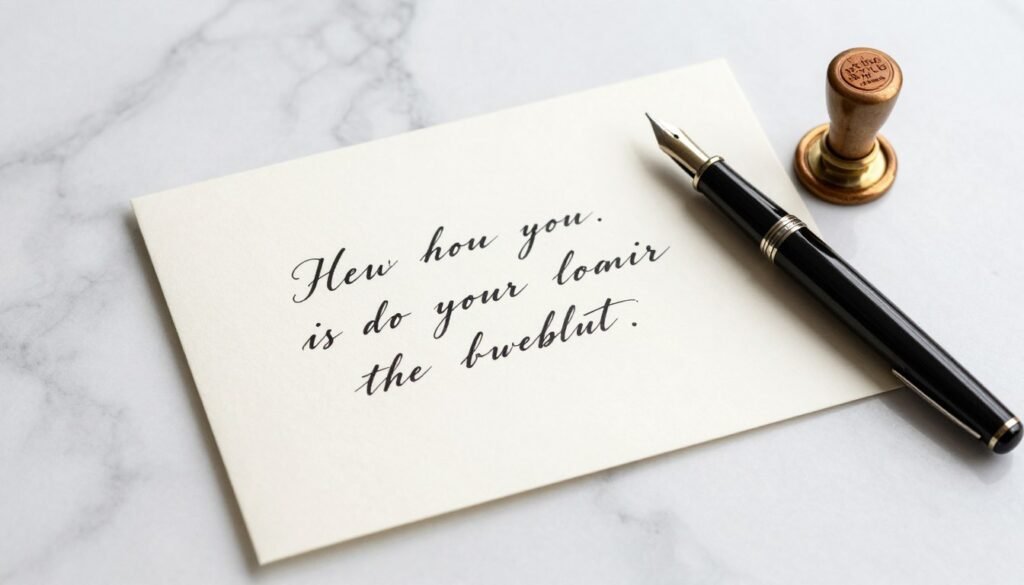 Hew hou you.
is do your loanir
the bweblut.